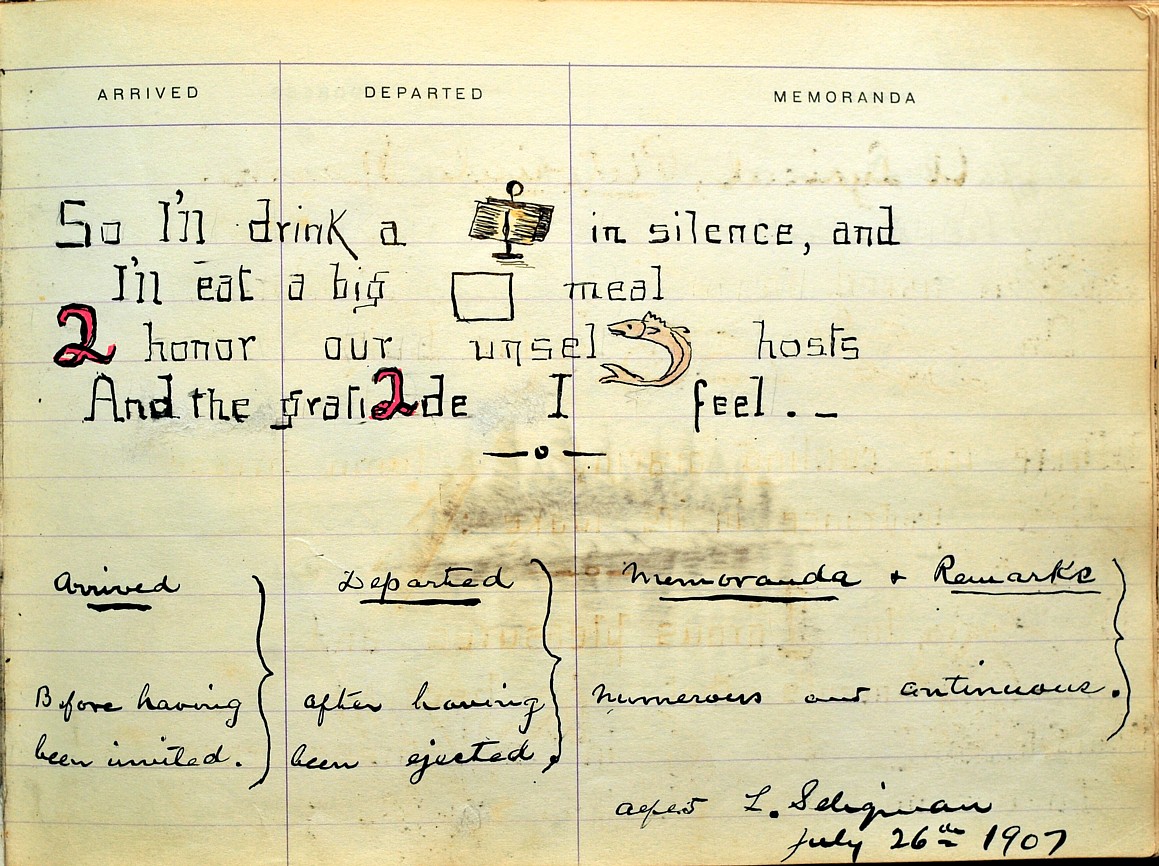 ARRIVED DEPARTED MEMORANDA
So I'll drink a in silence, and
I'll eat a big meal
2 honor our unsel hosts
And the grati2de I feel. —
Arrived Departed Memoranda + Remarks
Before having after having numerous and continuous.
been invited. been ejected.
L. Seligman
July 26th 1907